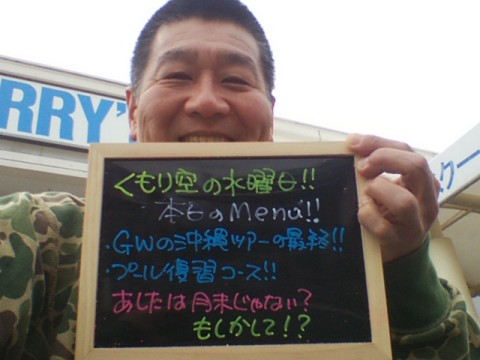 RRY'
スクー
くもり空の水曜日!!
本日のMenu!!
・GWの沖縄ツアーの最終!!
・プール復習コース!!
あしたは月末じゃない?
もしかして!?